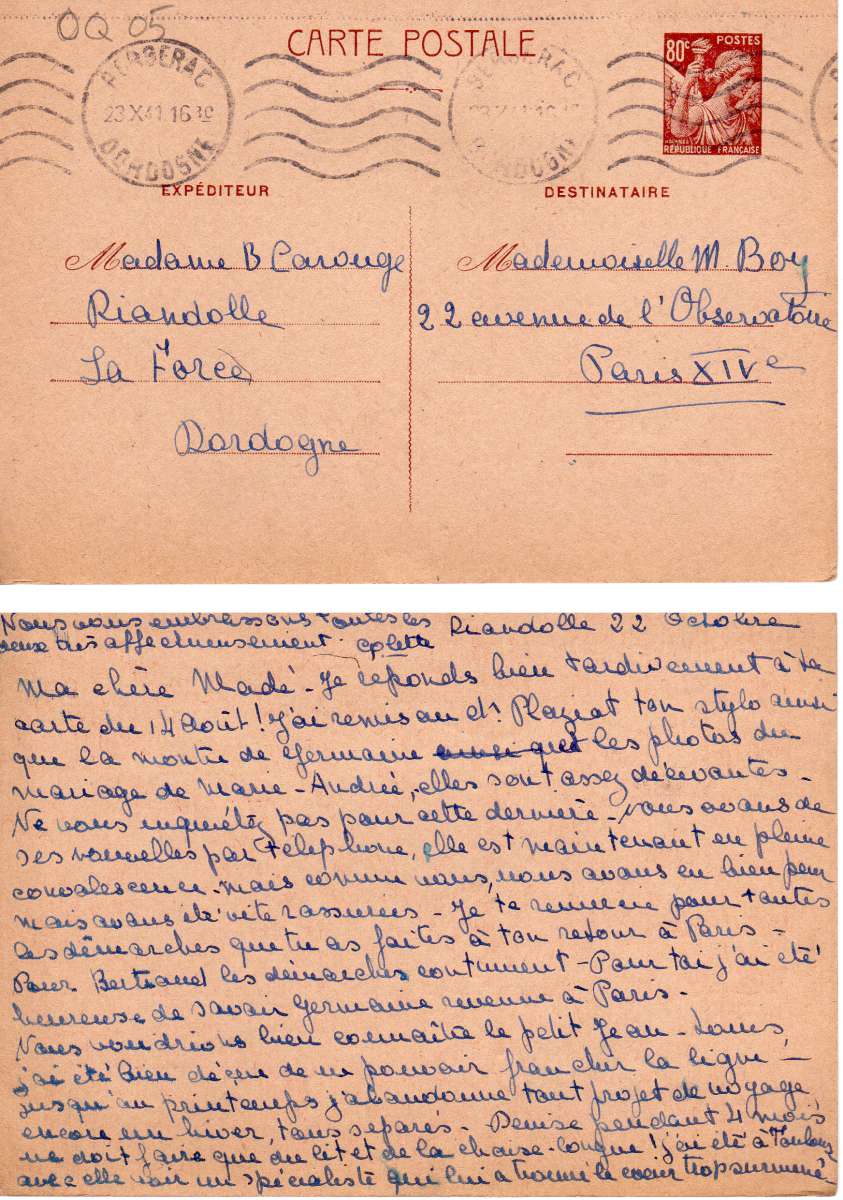 OQ 05
CARTE POSTALE
80c POSTES
RÉPUBLIQUE FRANÇAISE
BERGERAC
23 X 41 16 30
DORDOGNE
EXPÉDITEUR
Madame B Carouge
Riandolle
La Force
Dordogne
DESTINATAIRE
Mademoiselle M. Boy
22 avenue de l'Observatoire
Paris XIVe
Nous vous embrassons toutes les
deux très affectueusement. Colette
Riandolle 22 Octobre
Ma chère Madé - Je réponds bien tardivement à ta
carte du 14 Août ! J'ai remis au dr Plaziat ton stylo ainsi
que la montre de Germaine les photos du
mariage de Marie-Andrée, elles sont assez décevantes -
Ne vous inquiétez pas pour cette dernière - nous avons de
ses nouvelles par téléphone, elle est maintenant en pleine
convalescence - mais comme vous, nous avons eu bien peur
mais avons été vite rassurées - Je te remercie pour toutes
les démarches que tu as faites à ton retour à Paris -
Pour Bertrand les démarches continuent - Pour toi j'ai été
heureuse de savoir Germaine revenue à Paris -
Nous voudrions bien connaître le petit Jean-Louis,
j'ai été bien déçue de ne pouvoir franchir la ligne -
jusqu'au printemps j'abandonne tout projet de voyage
encore un hiver, tous séparés - Denise pendant 4 mois
ne doit faire que du lit et de la chaise-longue ! j'ai été à Toulouse
avec elle voir un spécialiste qui lui a trouvé le coeur trop surmené